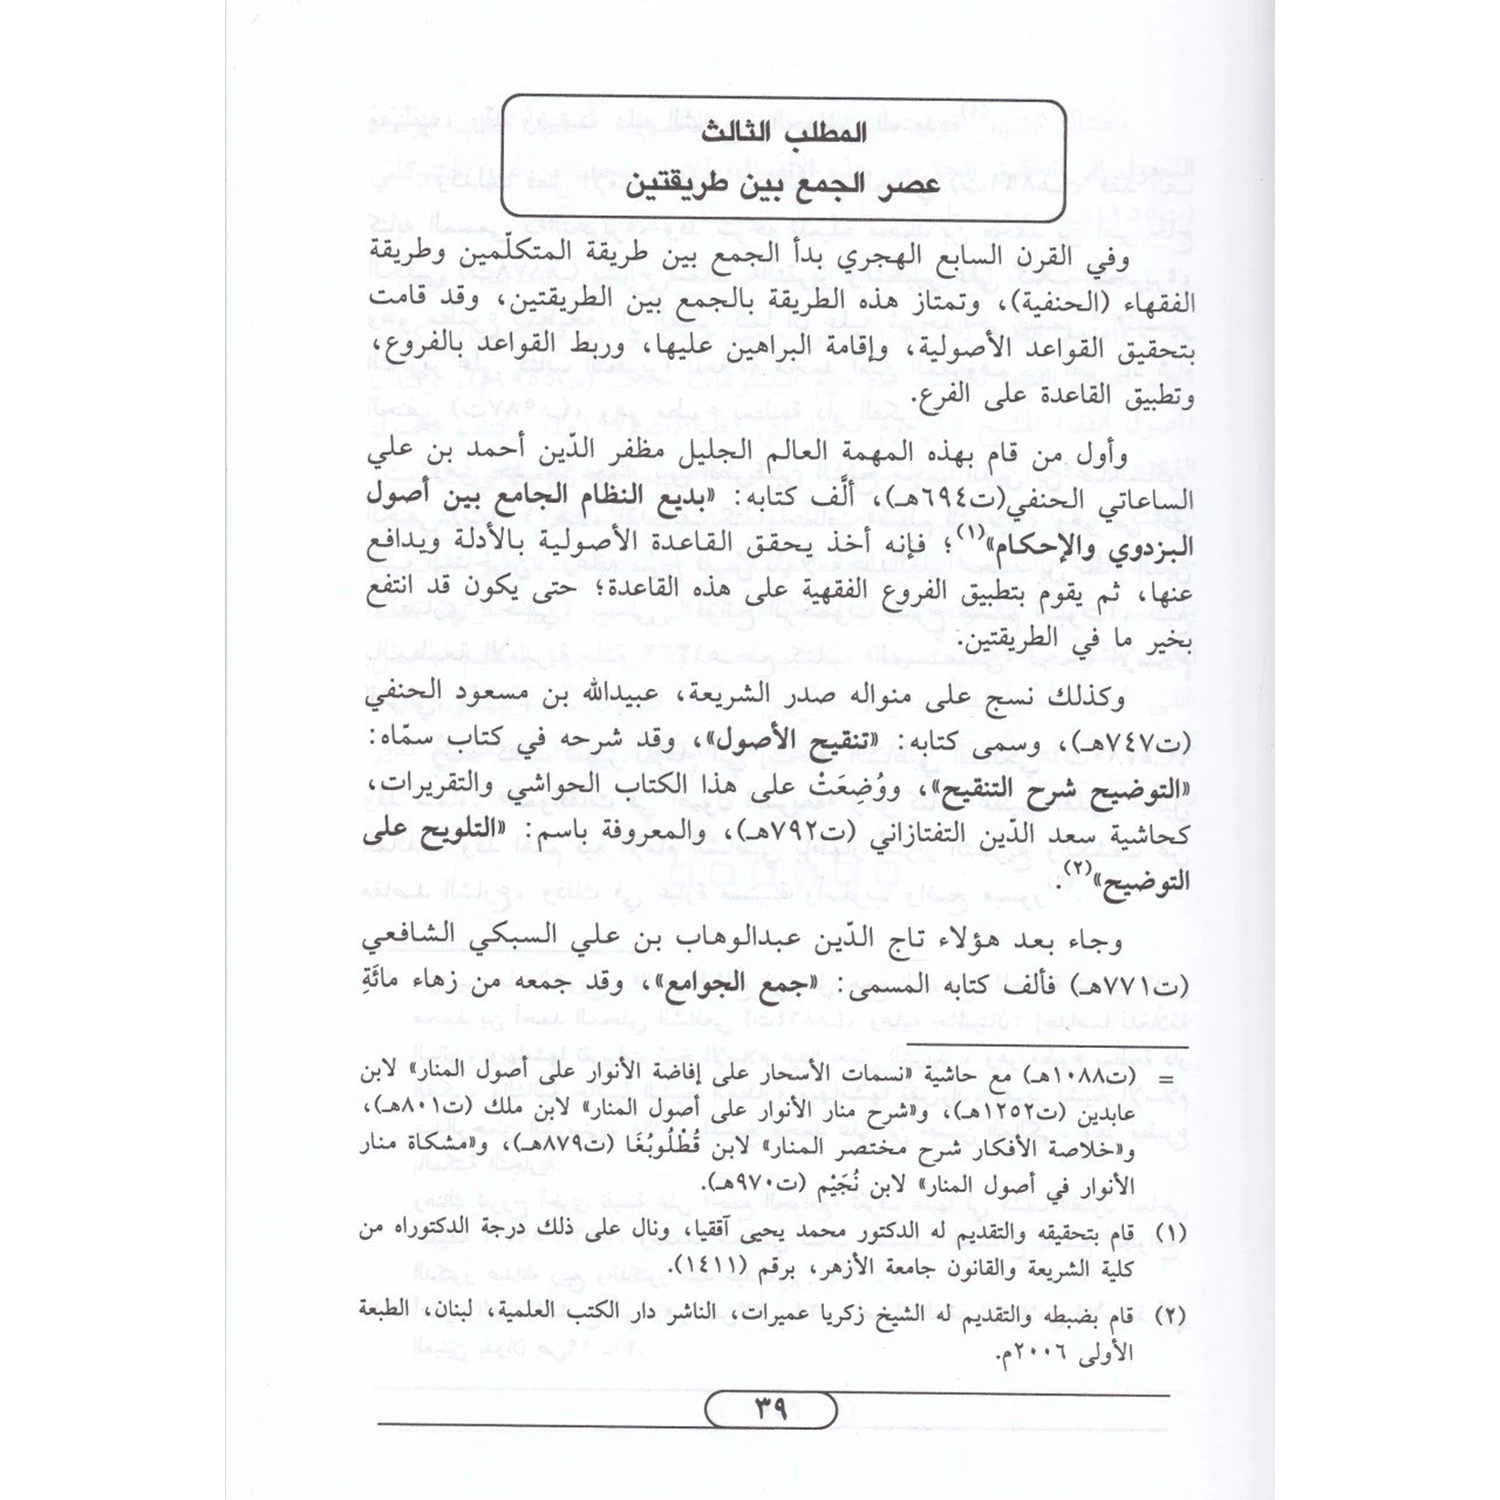 المطلب الثالث
عصر الجمع بين طريقتين
وفي القرن السابع الهجري بدأ الجمع بين طريقة المتكلّمين وطريقة
الفقهاء (الحنفية)، وتمتاز هذه الطريقة بالجمع بين الطريقتين، وقد قامت
بتحقيق القواعد الأصولية، وإقامة البراهين عليها، وربط القواعد بالفروع،
وتطبيق القاعدة على الفرع.
وأول من قام بهذه المهمة العالم الجليل مظفر الدّين أحمد بن علي
الساعاتي الحنفي(ت٦٩٤هـ)، ألَّف كتابه: «بديع النظام الجامع بين أصول
البزدوي والإحكام»(١)؛ فإنه أخذ يحقق القاعدة الأصولية بالأدلة ويدافع
عنها، ثم يقوم بتطبيق الفروع الفقهية على هذه القاعدة؛ حتى يكون قد انتفع
بخير ما في الطريقتين.
وكذلك نسج على منواله صدر الشريعة، عبيدالله بن مسعود الحنفي
(ت٧٤٧هـ)، وسمى كتابه: «تنقيح الأصول»، وقد شرحه في كتاب سمّاه:
«التوضيح شرح التنقيح»، ووُضِعَتْ على هذا الكتاب الحواشي والتقريرات،
كحاشية سعد الدّين التفتازاني (ت٧٩٢هـ)، والمعروفة باسم: «التلويح على
التوضيح»(٢).
وجاء بعد هؤلاء تاج الدّين عبدالوهاب بن علي السبكي الشافعي
(ت٧٧١هـ) فألف كتابه المسمى: «جمع الجوامع»، وقد جمعه من زهاء مائَةِ
= (ت١٠٨٨هـ) مع حاشية «نسمات الأسحار على إفاضة الأنوار على أصول المنار» لابن
عابدين (ت١٢٥٢هـ)، و«شرح منار الأنوار على أصول المنار» لابن ملك (ت٨٠١هـ)،
و«خلاصة الأفكار شرح مختصر المنار» لابن قُطْلُوبُغَا (ت٨٧٩هـ)، و«مشكاة منار
الأنوار في أصول المنار» لابن نُجَيْم (ت٩٧٠هـ).
(١) قام بتحقيقه والتقديم له الدكتور محمد يحيى آققيا، ونال على ذلك درجة الدكتوراه من
كلية الشريعة والقانون جامعة الأزهر، برقم (١٤١١).
(٢) قام بضبطه والتقديم له الشيخ زكريا عميرات، الناشر دار الكتب العلمية، لبنان، الطبعة
الأولى ٢٠٠٦م.
٣٩